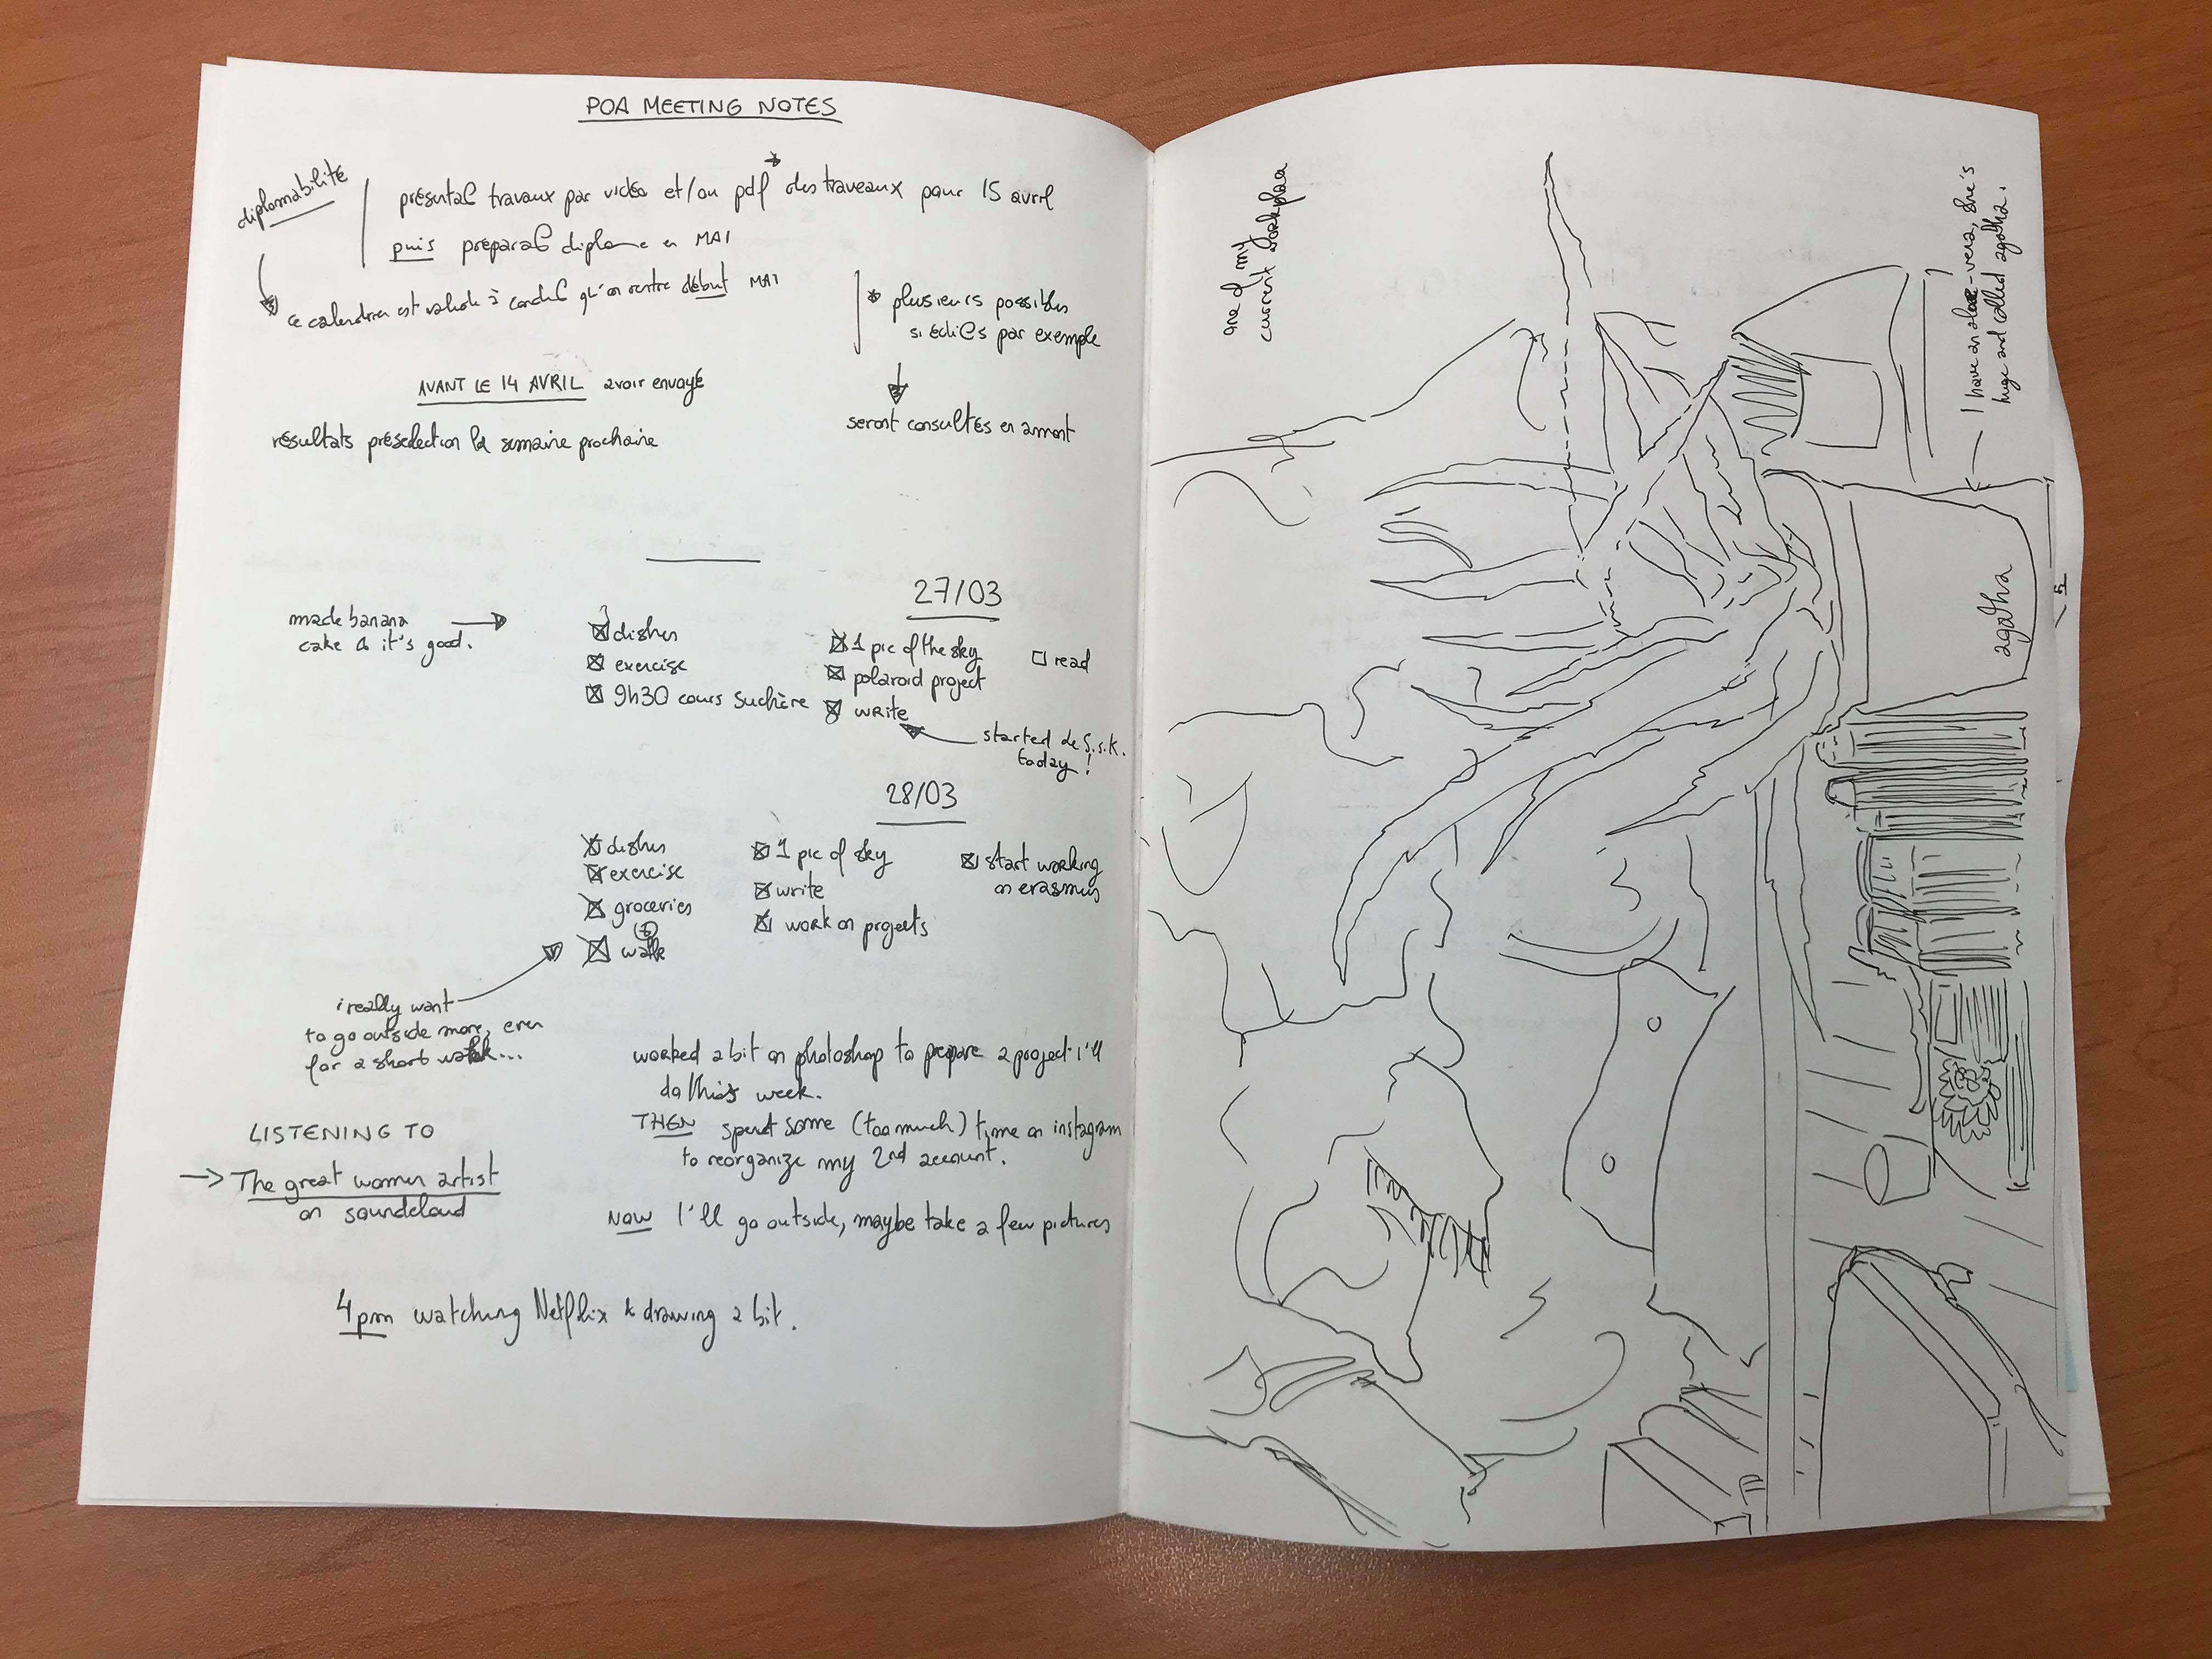 POA MEETING NOTES
diplomabilité
présentat° travaux par vidéo et/ou pdf* des traveaux pour 15 avril
puis préparat° diplome en MAI
ce calendrier est valide à condit° qu'on rentre début MAI
* plusieurs possibles
si édit°s par exemple
seront consultés en amont
AVANT LE 14 AVRIL avoir envoyé
résultats présélection la semaine prochaine
27/03
made banana
cake & it's good.
dishes
exercise
9h30 cours Suchère
1 pic of the sky
polaroid project
write
read
started de S.S.K.
today!
28/03
dishes
exercise
groceries
walk
1 pic of sky
write
work on projects
start working
on erasmus
i really want
to go outside more, even
for a short walk...
worked a bit on photoshop to prepare a project i'll
do this week.
THEN spent some (too much) time on instagram
to reorganize my 2nd account.
NOW I'll go outside, maybe take a few pictures
LISTENING TO
→ The great women artist
on soundcloud
4pm watching Netflix & drawing a bit.
one of my
current workplace
I have an aloe-vera, she's
huge and called agatha.
agatha